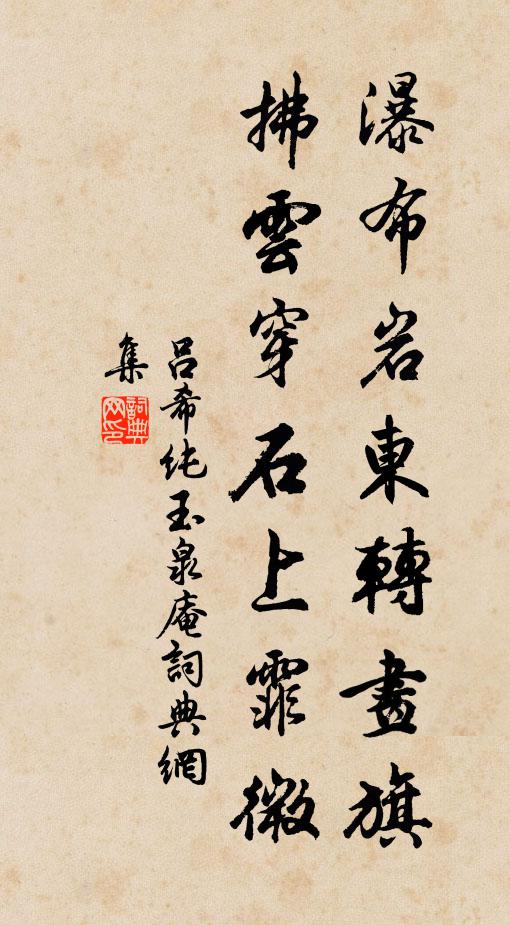 瀑布岩東轉畫旗
拂雲穿石上霏微
呂希純玉泉庵詞典網
集
詞典网印